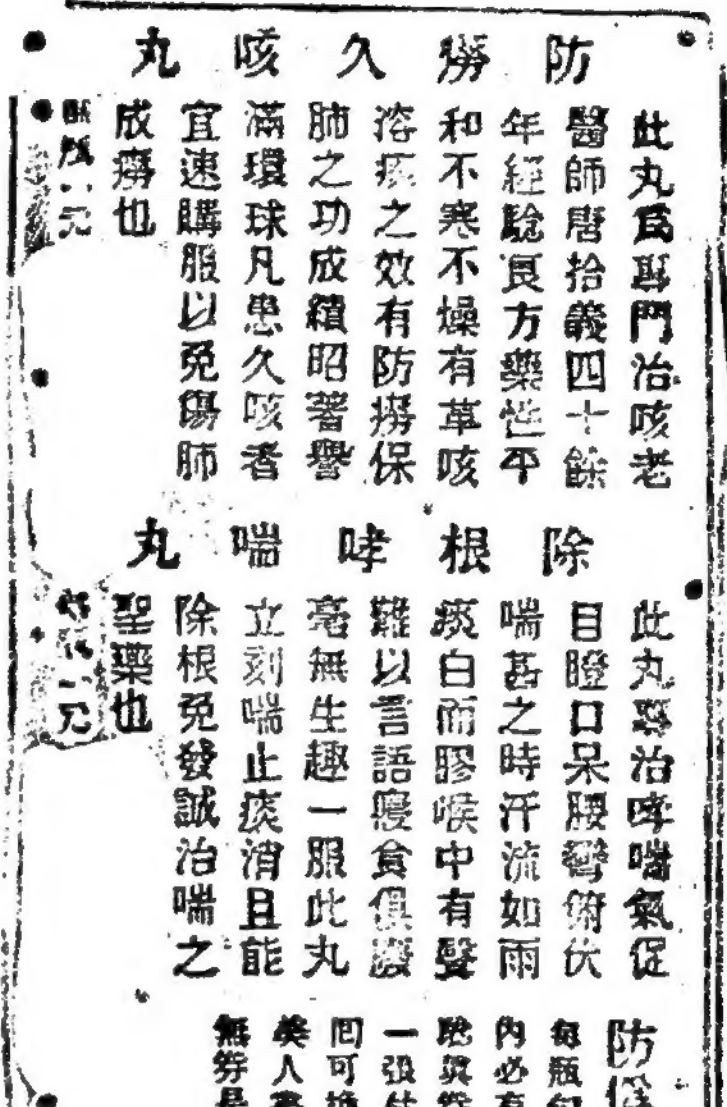 防癆久咳丸
此丸爲專門治咳老
醫師唐拾義四十餘
年經驗良方藥性平
和不寒不燥有革咳
溶痰之效有防癆保
肺之功成績昭著譽
滿環球凡患久咳者
宜速購服以免傷肺
成癆也
瓶一元
除根哮喘丸
此丸專治哮喘氣促
目瞪口呆腰彎俯伏
喘甚之時汗流如雨
痰白而膠喉中有聲
難以言語寢食俱廢
毫無生趣一服此丸
立刻喘止痰消且能
除根免發誠治喘之
聖藥也
一元
防
每瓶
內必有
一張
回可換
美人
無券